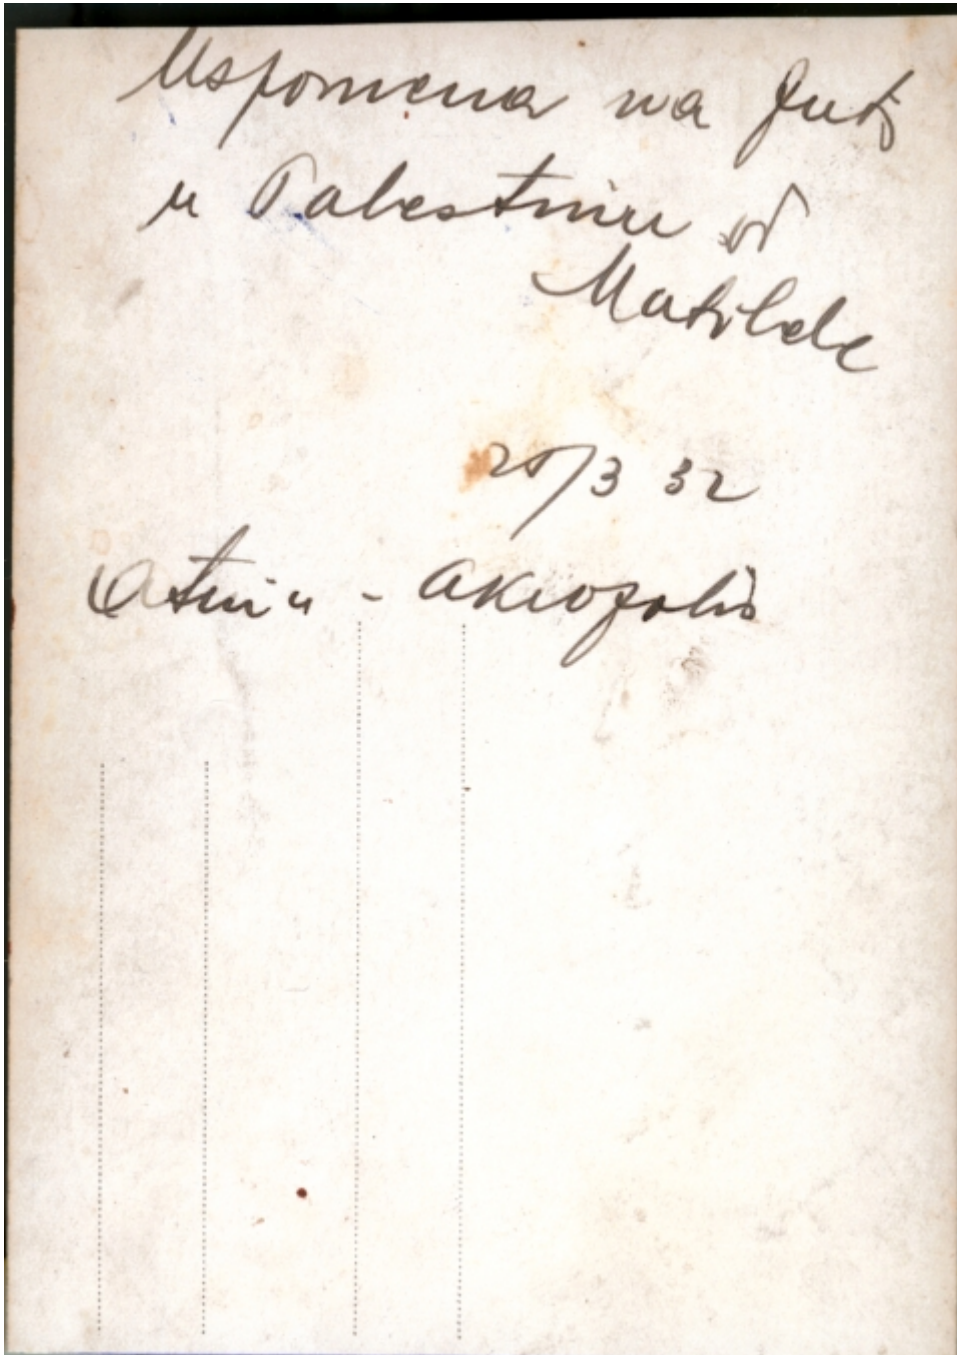 Uspomena na put
u Palestinu od
Matilde
25/3 32
Atina - Akropolis